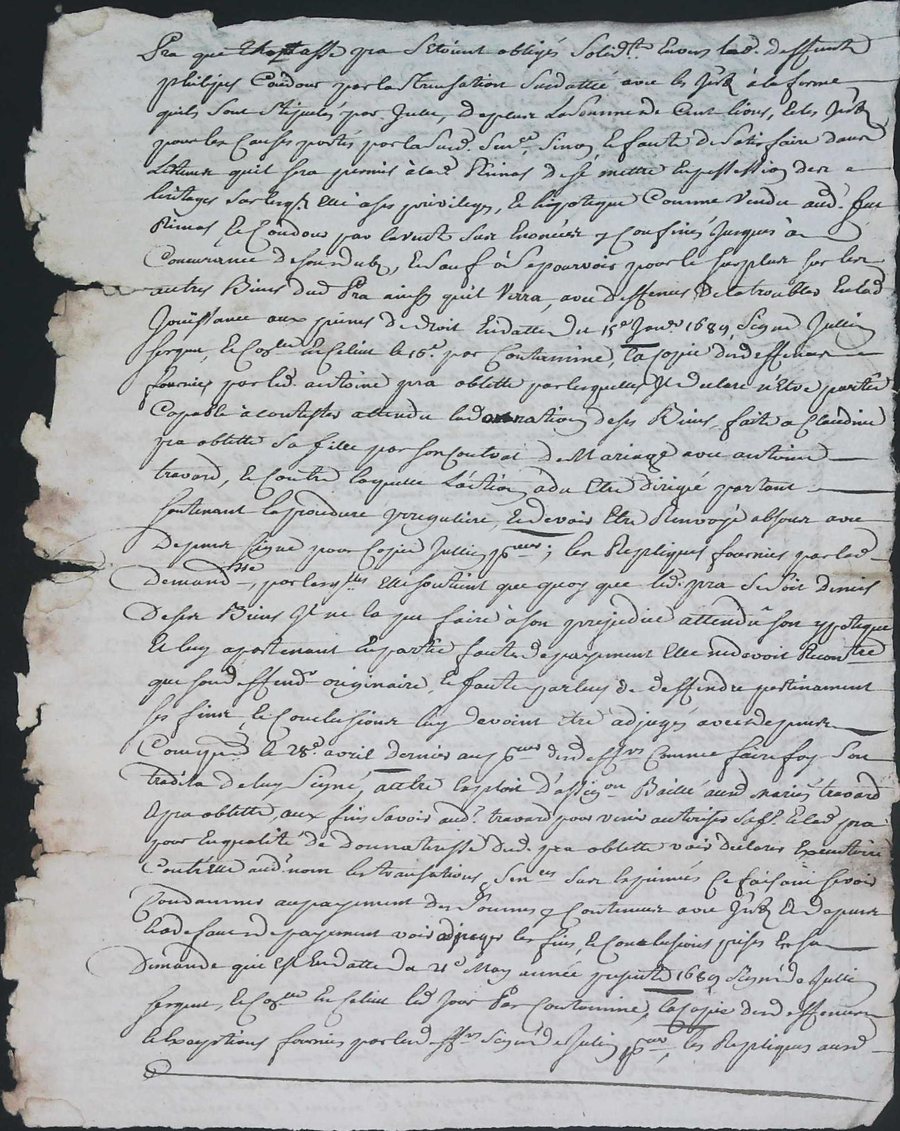 Pra que Chastasse pra s'etoint obligés solid.t envers lad. deffunte
philipes Coudour par la transation susdatté avec les Jnts à la forme
quils sont stipulés par Jcelle, de plus la somme de Cent lions, et les Jnts
pour les Causes portés par la susd. Sen.ce, sinon et faute de satisfaire dans
qu'il sera permis à lad. Rimas de sé mettre en possession des
heritages sur lesq. elle a ses privileges, et hipoteque Comme vendu aud. feu
Rimas, et Coudour par la vente sus enoncée et Confinés Jusques à
Concurrance de son dub, et sauf à se pourvoir pour le surplus sur les
autres Biens dud Pra ainsy quil verra, avec deffences de la troubler en lad
Jouissance aux peines de droit en datte du 15e Janv. 1689 signé Jullin
sergent, et Co.lle le 16e par Contamine, la copie desd deffences
fournies par led. antoine pra oblette par lesquelles Jl declare n'etre partie
Capable à contester attendu lad donation de ses Biens, faite a Claudine
pra oblette sa fille par son Contrat de Mariage avec antoine
travard, et Contre laquelle l'action a du etre dirigée partant
soutenant la procedure yrreguliere, et devoir etre Renvoyé absous avec
Depens signé pour Copie Jullin p.eur; les Repliques fournies par lad
Demand.sse, par lesq.lles elle soutient que quoy que led. pra se soit demis
De ses Biens Jl ne la pu faire à son prejudice attendu son ypoteque
et luy apartenant en partie faute de payement elle ne devoit Reconnoitre
que son deffend.r originaire, et faute par luy de deffendre pertinament
ses fins et Conclusions luy devoint etre adjugés avec depens
le 28e avril dernier aux p.eurs desd. deff.rs Comme fait foy son
tradita de luy signé, autre exploit d'assig.on Baillé aux mariés travard
et pra oblette, aux fins savoir aud. travard pour venir autoriser sa f.e et lad pra
pour en qualité de donnatrisse dud. pra oblette voir declarer executoire
Contr'elle aud. nom les transations, sen.ces sus exprimés Ce faisant se voir
Condamner au payement des sommes y Contenues avec Jnts et depens
et a defaut de payement voir adjuger les fins, et Conclusions prises en sa
Demande qui est en datte du 21e May année presente 1689 signé de Jullin
sergent, et Co.lle led. jour Par Contamine, la copie desd deffences
et exceptions fournies par lesd. deff.rs signé de Jullin p.eur, les Repliques ausd